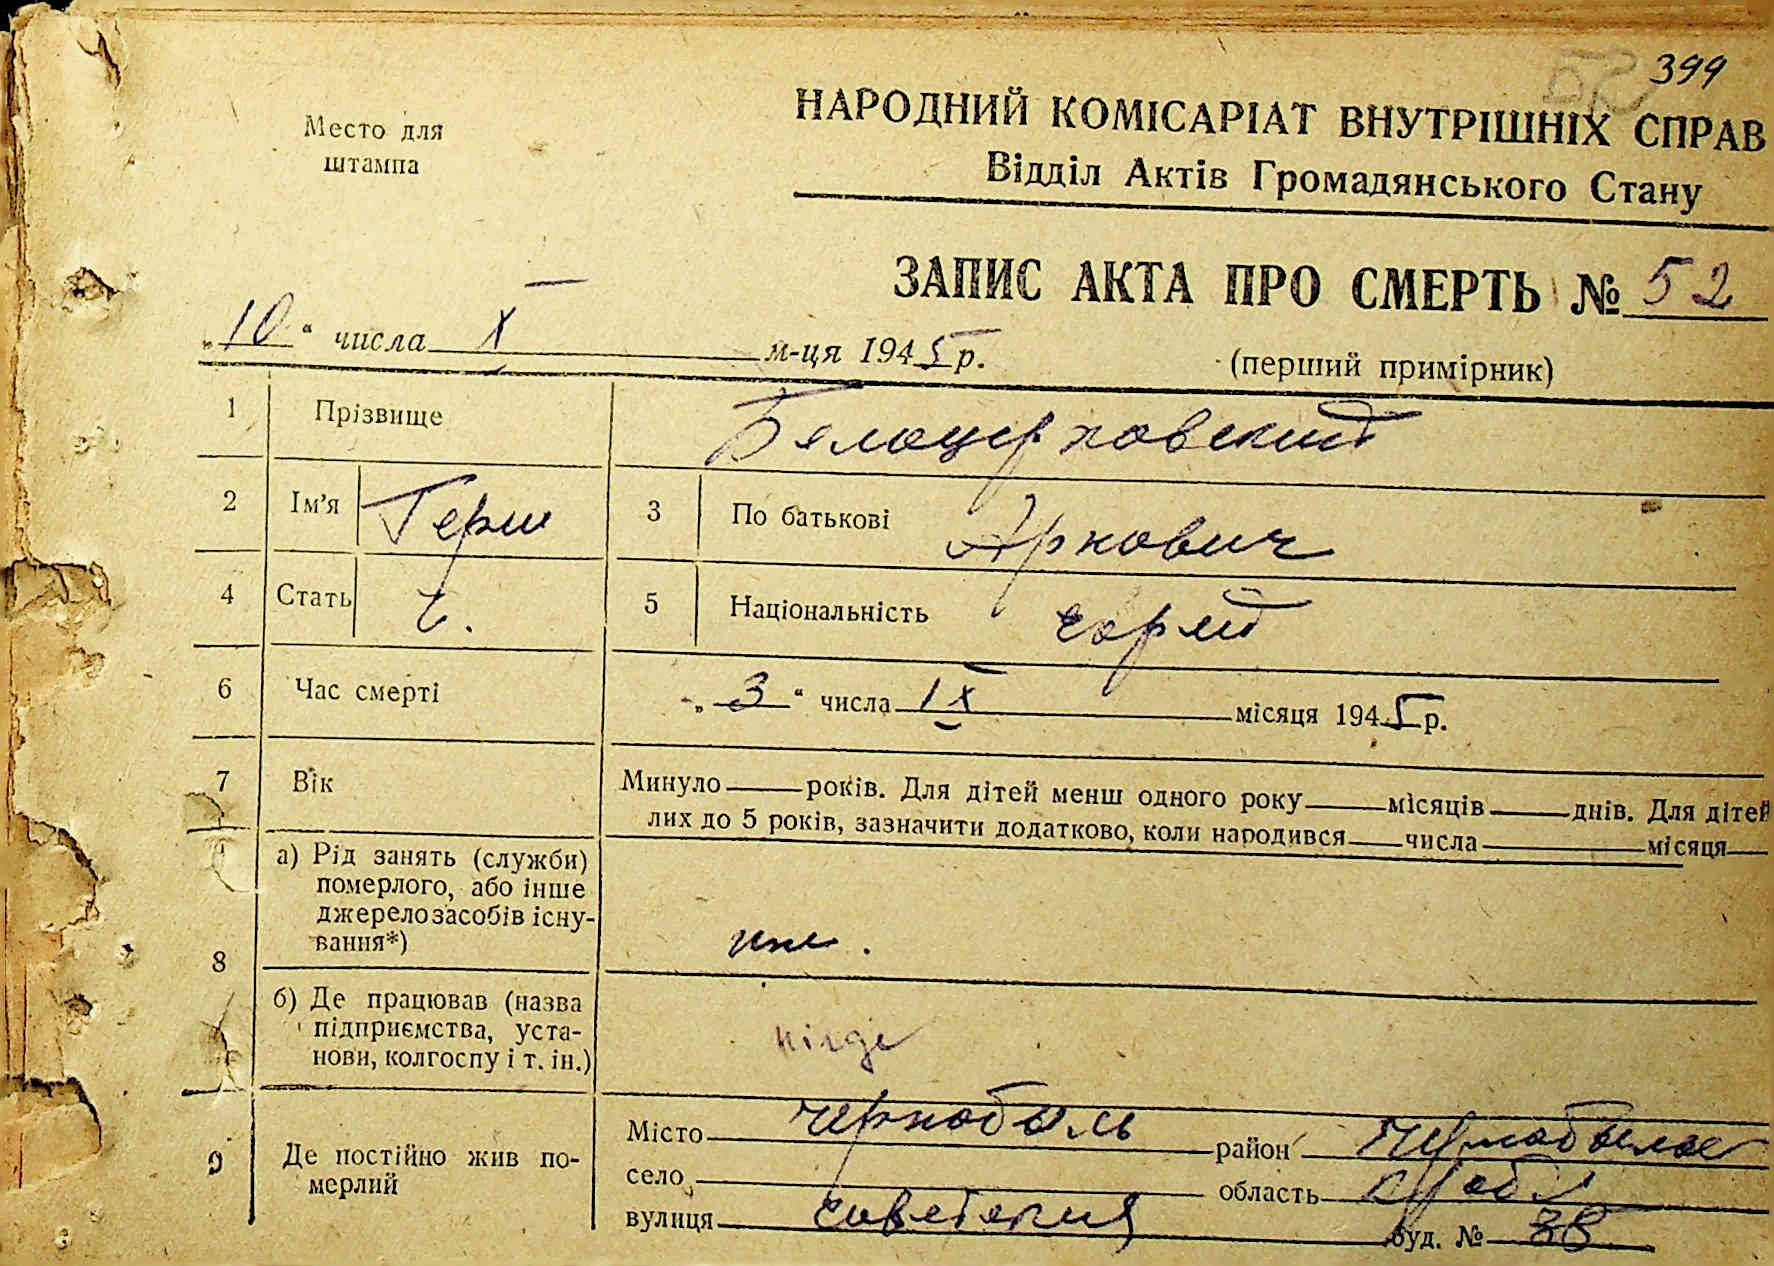 399
Место для
штампа
НАРОДНИЙ КОМІСАРІАТ ВНУТРІШНІХ СПРАВ
Відділ Актів Громадянського Стану
ЗАПИС АКТА ПРО СМЕРТЬ № 52
„10“ числа X м-ця 1945 р. (перший примірник)
1 Прізвище Белоцерковский
2 Ім'я Герш 3 По батькові Аркович
4 Стать ч. 5 Національність еврей
6 Час смерті „3“ числа IX місяця 1945 р.
7 Вік Минуло ___ років. Для дітей менш одного року ___ місяців ___ днів. Для дітей
лих до 5 років, зазначити додатково, коли народився ___ числа ___ місяця
8 а) Рід занять (служби)
померлого, або інше
джерело засобів існу-
вання*)
ижд.
б) Де працював (назва
підприємства, уста-
нови, колгоспу і т. ін.)
нігде
9 Де постійно жив по-
мерлий
Місто Чернобыль район
село ___ область
вулиця Советская буд. № 38